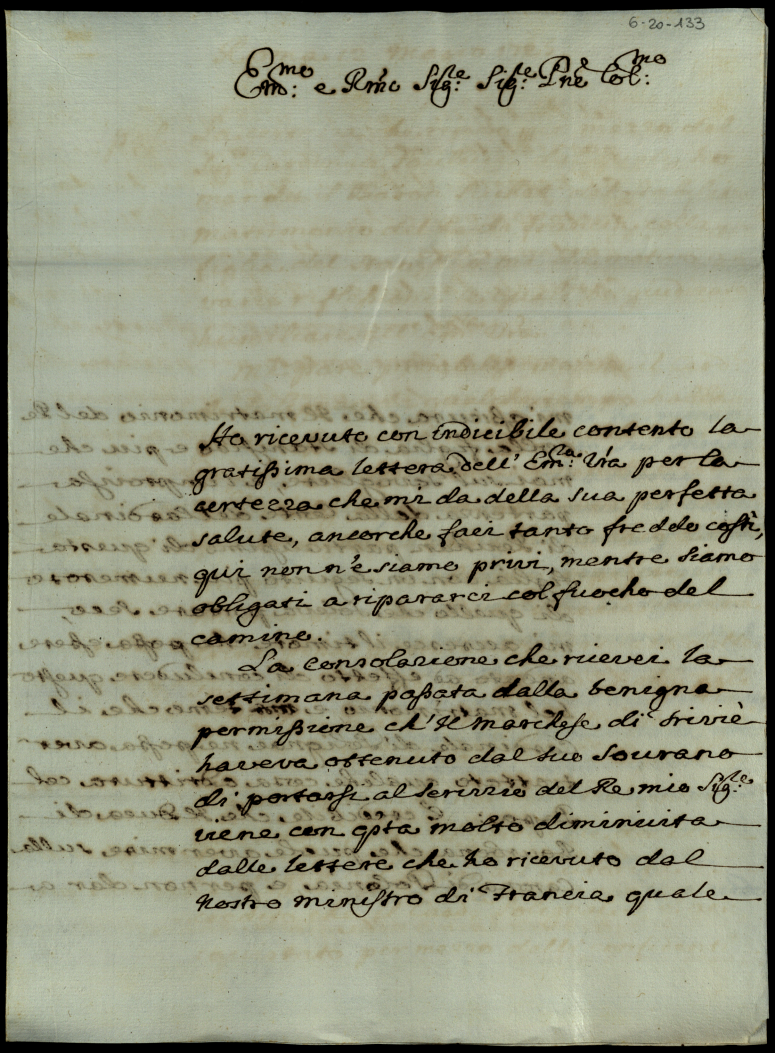 6-20-133
Em:mo e Rmo Sig:re Sig:re Pne Col:mo
Ho ricevuto con indicibile contento la
gratissima lettera dell' Em:za Vra per la
certezza che mi da della sua perfetta
salute, ancorche faci tanto freddo costì,
qui non n'è siamo privi, mentre siamo
obligati a ripararci col fuocho del
camino.
La consolazione che ricevei la
settimana passata dalla benigna
permissione ch' Il Marchese di Triviè
haveva ottenuto dal suo Sourano
di portarsi al servizio del Re mio Sig:re
viene con qsta molto diminuita
dalle lettere che ho ricevuto dal
Nostro ministro di Francia quale